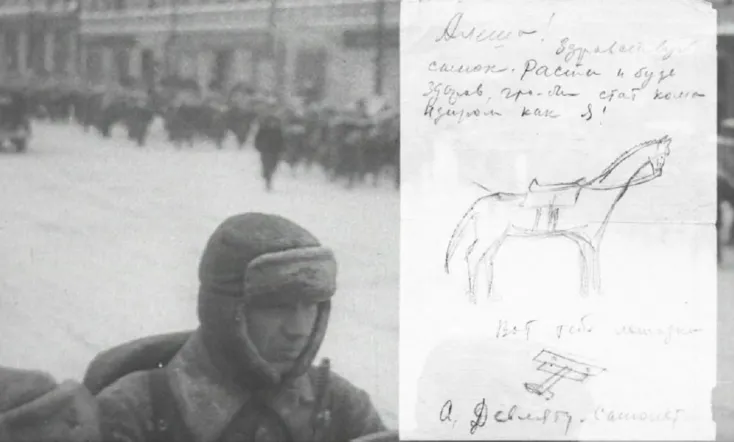 Алеша!
Здравствуй
сынок. Расти и будь
здоров, что-бы стат кома
ндиром как я!
Вот тебе лошадка
А, самолет